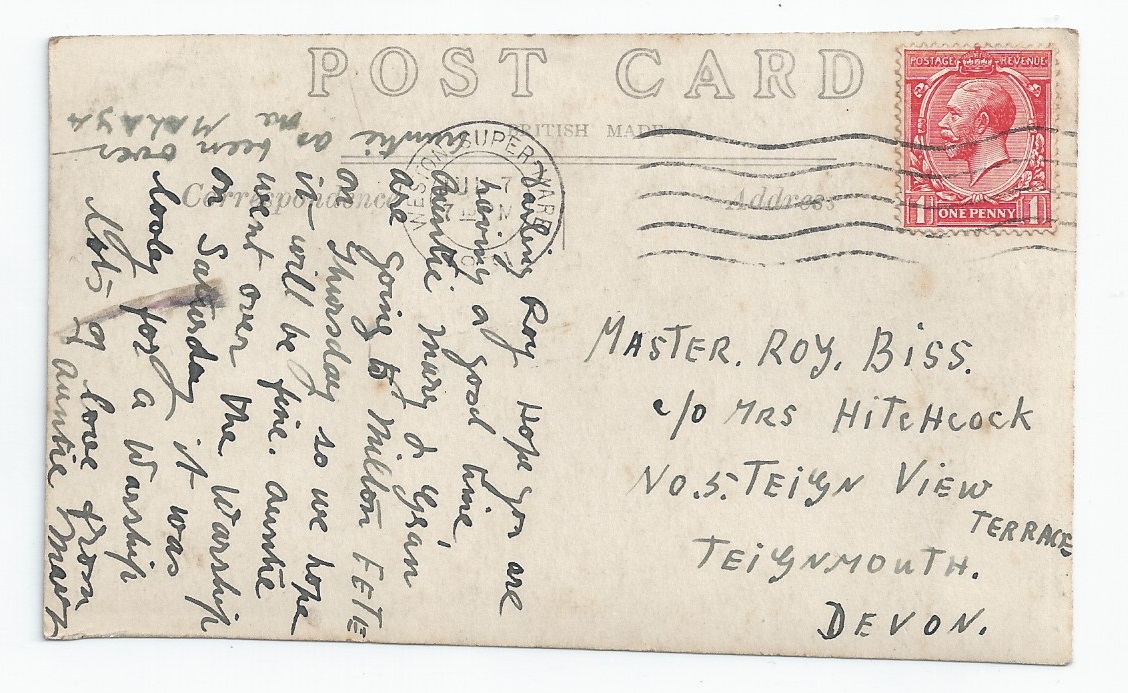 POST CARD
BRITISH MADE
Correspondence
Address
POSTAGE REVENUE
1 ONE PENNY 1
WESTON SUPER MARE
JUL 7
Darling Roy Hope you are
having a good time,
Auntie Mary & Gran
are going to Milton FETE
on Thursday so we hope
it will be fine. auntie
went over the Warship
on Saturday it was
lovely for a Warship
Lots of love from
Auntie Mary
auntie as been over
the MALAYA
MASTER. ROY. BISS.
c/o MRS HITCHCOCK
No. 5. TEIGN VIEW
TERRACE
TEIGNMOUTH.
DEVON.